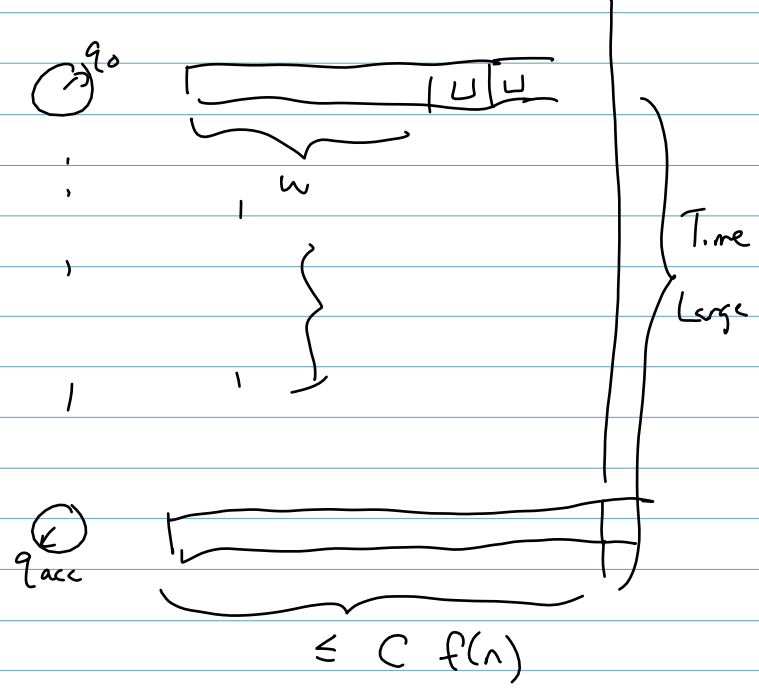 q₀
⊔ ⊔
w
Time
Large
q acc
≤ C f(n)